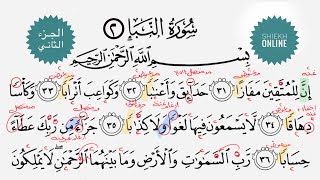 الجزء الثاني
سُورَةُ النَّبَإِ ٢
SHIEKH ONLINE
بِسْمِ اللَّهِ الرَّحْمَٰنِ الرَّحِيمِ
إِنَّ لِلْمُتَّقِينَ مَفَازًا ٣١ حَدَائِقَ وَأَعْنَابًا ٣٢ وَكَوَاعِبَ أَتْرَابًا ٣٣ وَكَأْسًا
دِهَاقًا ٣٤ لَا يَسْمَعُونَ فِيهَا لَغْوًا وَلَا كِذَّابًا ٣٥ جَزَاءً مِنْ رَبِّكَ عَطَاءً
حِسَابًا ٣٦ رَبِّ السَّمَاوَاتِ وَالْأَرْضِ وَمَا بَيْنَهُمَا الرَّحْمَٰنِ لَا يَمْلِكُونَ